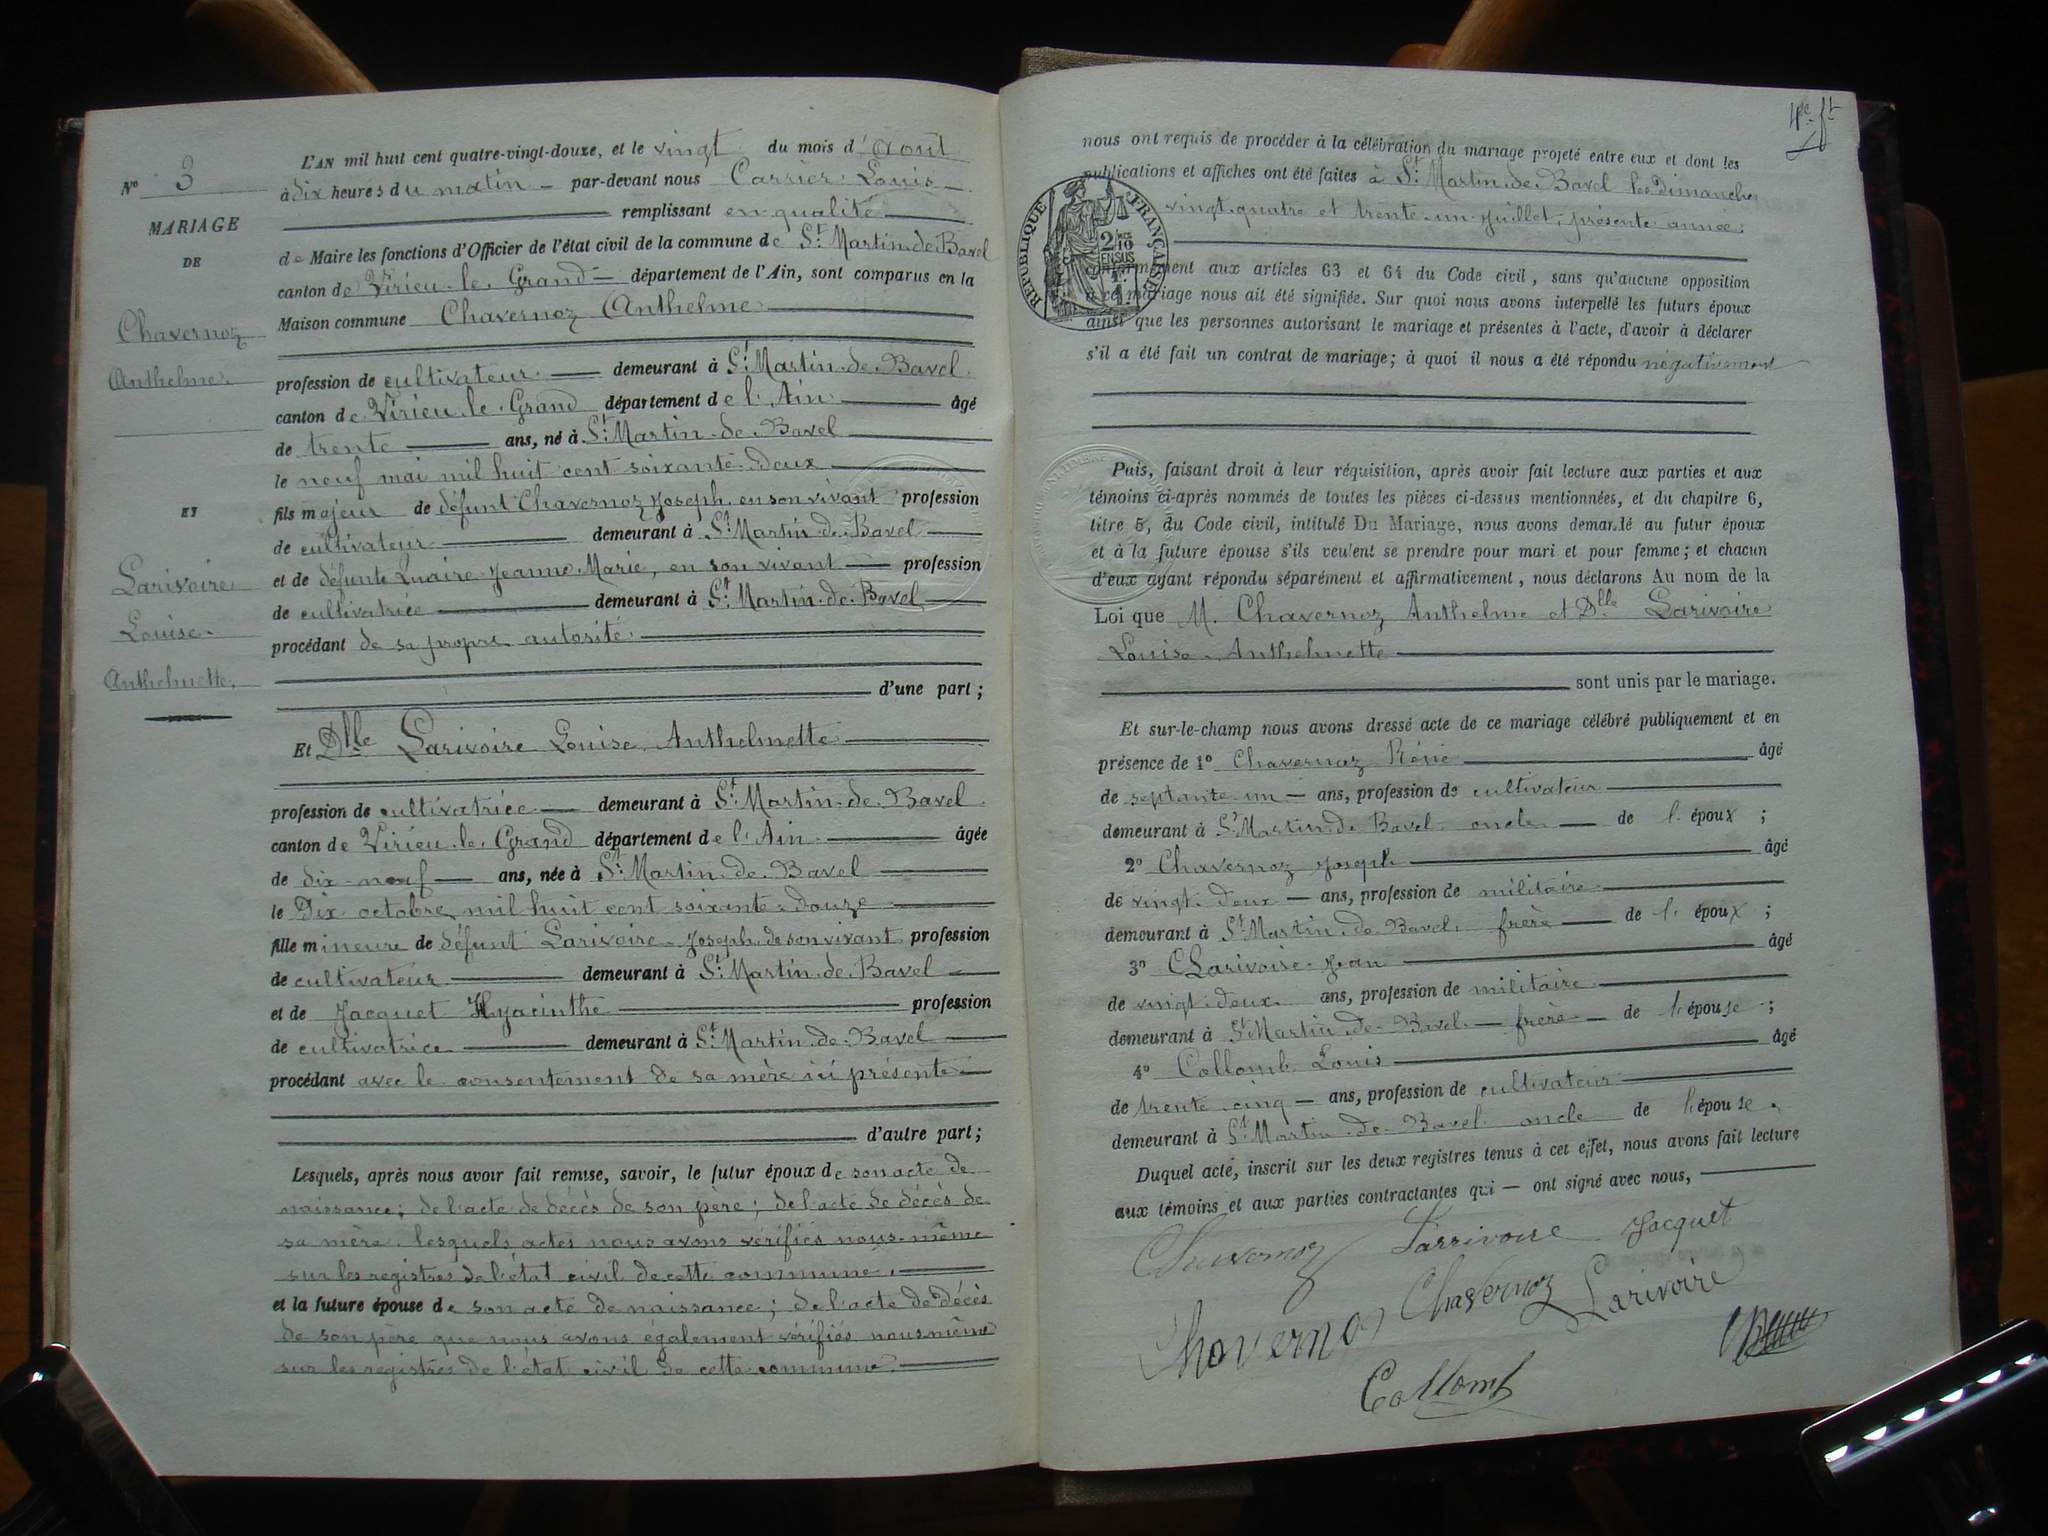 N° 3
MARIAGE
DE
Chavernoz
Anthelme.
ET
Larivoire
Louise
Anthelmette.
L'AN mil huit cent quatre-vingt-douze, et le vingt du mois d'Août
à dix heures du matin par-devant nous Carrier Louis
remplissant en qualité
de Maire les fonctions d'Officier de l'état civil de la commune de St. Martin-de-Bavel
canton de Virieu-le-Grand département de l'Ain, sont comparus en la
Maison commune Chavernoz Anthelme
profession de cultivateur demeurant à St. Martin-de-Bavel
canton de Virieu-le-Grand département de l'Ain âgé
de trente ans, né à St. Martin-de-Bavel
le neuf mai mil huit cent soixante-deux
fils majeur de défunt Chavernoz Joseph, en son vivant profession
de cultivateur demeurant à St. Martin-de-Bavel
et de défunte Jeanne-Marie, en son vivant profession
de cultivatrice demeurant à St. Martin-de-Bavel
procédant de sa propre autorité.
d'une part;
Et Dlle Larivoire Louise Anthelmette
profession de cultivatrice demeurant à St. Martin-de-Bavel
canton de Virieu-le-Grand département de l'Ain âgée
de dix-neuf ans, née à St. Martin-de-Bavel
le Dix octobre mil huit cent soixante-douze
fille mineure de défunt Larivoire Joseph, de son vivant profession
de cultivateur demeurant à St. Martin-de-Bavel
et de Jacquet Hyacinthe profession
de cultivatrice demeurant à St. Martin-de-Bavel
procédant avec le consentement de sa mère ici présente
d'autre part;
Lesquels, après nous avoir fait remise, savoir, le futur époux de son acte de
naissance; de l'acte de décès de son père; de l'acte de décès de
sa mère, lesquels actes nous avons vérifiés nous-même
sur les registres de l'état civil de cette commune,
et la future épouse de son acte de naissance; de l'acte de décès
de son père que nous avons également vérifiés nous même
sur les registres de l'état civil de cette commune.
nous ont requis de procéder à la célébration du mariage projeté entre eux et dont les
publications et affiches ont été faites à St. Martin-de-Bavel les Dimanches
vingt-quatre et trente-un juillet, présente année.
RÉPUBLIQUE FRANÇAISE
2/10 EN SUS
conformément aux articles 63 et 64 du Code civil, sans qu'aucune opposition
à ce mariage nous ait été signifiée. Sur quoi nous avons interpellé les futurs époux
ainsi que les personnes autorisant le mariage et présentes à l'acte, d'avoir à déclarer
s'il a été fait un contrat de mariage; à quoi il nous a été répondu négativement
Puis, faisant droit à leur réquisition, après avoir fait lecture aux parties et aux
témoins ci-après nommés de toutes les pièces ci-dessus mentionnées, et du chapitre 6,
titre 5, du Code civil, intitulé Du Mariage, nous avons demandé au futur époux
et à la future épouse s'ils veulent se prendre pour mari et pour femme; et chacun
d'eux ayant répondu séparément et affirmativement, nous déclarons Au nom de la
Loi que M. Chavernoz Anthelme et Dlle Larivoire
Louise Anthelmette
sont unis par le mariage.
Et sur-le-champ nous avons dressé acte de ce mariage célébré publiquement et en
présence de 1° Chavernoz Réné âgé
de septante-un ans, profession de cultivateur
demeurant à St. Martin-de-Bavel oncle de l'époux;
2° Chavernoz Joseph âgé
de vingt-deux ans, profession de militaire
demeurant à St. Martin-de-Bavel, frère de l'époux;
3° Larivoire Jean âgé
de vingt-deux ans, profession de militaire
demeurant à St. Martin-de-Bavel frère de l'épouse;
4° Collomb Louis âgé
de trente-cinq ans, profession de cultivateur
demeurant à St. Martin-de-Bavel oncle de l'épouse.
Duquel acte, inscrit sur les deux registres tenus à cet effet, nous avons fait lecture
aux témoins et aux parties contractantes qui ont signé avec nous,
Chavernoz Larrivoire Jacquet
Chavernoz Chavernoz Larivoire
Collomb